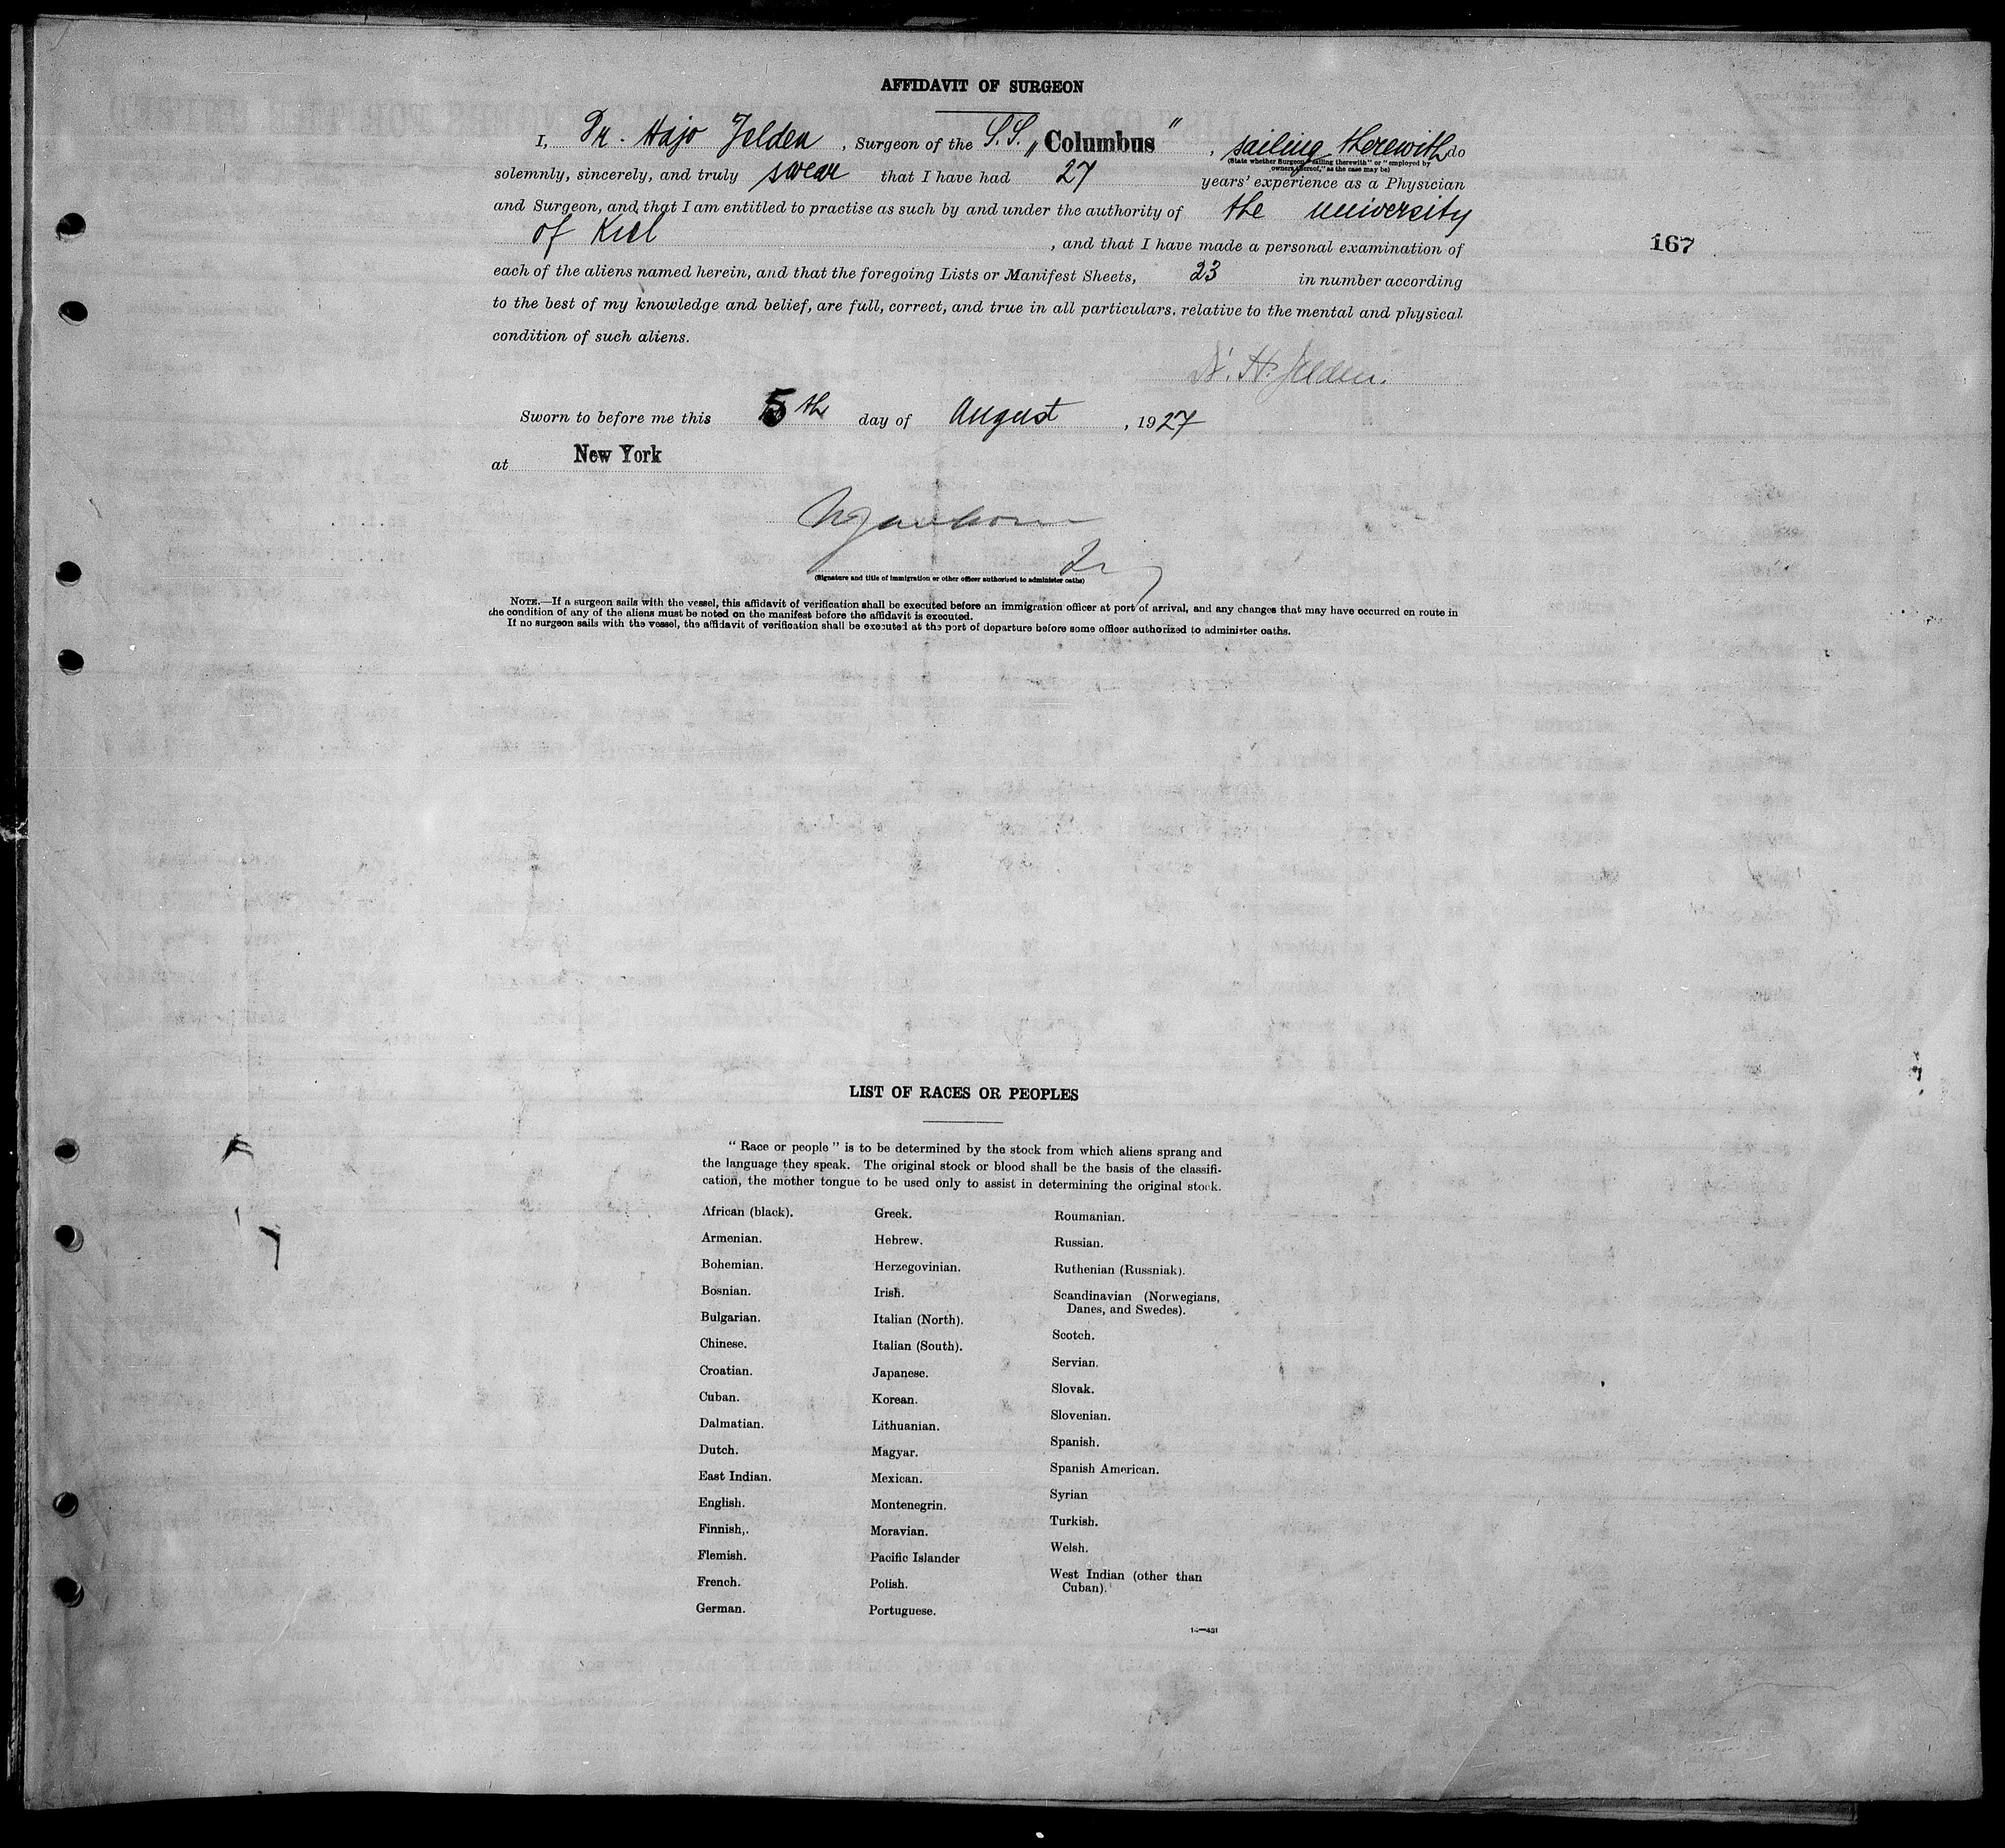 AFFIDAVIT OF SURGEON
I, Dr. Hajo Jelden, Surgeon of the S.S. „Columbus", sailing therewith do
(State whether Surgeon "sailing therewith" or "employed by
owners thereof," as the case may be)
solemnly, sincerely, and truly swear that I have had 27 years' experience as a Physician
and Surgeon, and that I am entitled to practise as such by and under the authority of the university
of Kiel, and that I have made a personal examination of
167
each of the aliens named herein, and that the foregoing Lists or Manifest Sheets, 23 in number according
to the best of my knowledge and belief, are full, correct, and true in all particulars, relative to the mental and physical
condition of such aliens.
Dr. H. Jelden.
Sworn to before me this 5th day of August, 1927
at New York
(Signature and title of immigration or other officer authorized to administer oaths)
NOTE.—If a surgeon sails with the vessel, this affidavit of verification shall be executed before an immigration officer at port of arrival, and any changes that may have occurred en route in
the condition of any of the aliens must be noted on the manifest before the affidavit is executed.
If no surgeon sails with the vessel, the affidavit of verification shall be executed at the port of departure before some officer authorized to administer oaths.
LIST OF RACES OR PEOPLES
"Race or people" is to be determined by the stock from which aliens sprang and
the language they speak. The original stock or blood shall be the basis of the classifi-
cation, the mother tongue to be used only to assist in determining the original stock.
African (black).
Armenian.
Bohemian.
Bosnian.
Bulgarian.
Chinese.
Croatian.
Cuban.
Dalmatian.
Dutch.
East Indian.
English.
Finnish,.
Flemish.
French.
German.
Greek.
Hebrew.
Herzegovinian.
Irish.
Italian (North).
Italian (South).
Japanese.
Korean.
Lithuanian.
Magyar.
Mexican.
Montenegrin.
Moravian.
Pacific Islander
Polish.
Portuguese.
Roumanian.
Russian.
Ruthenian (Russniak).
Scandinavian (Norwegians,
Danes, and Swedes).
Scotch.
Servian.
Slovak.
Slovenian.
Spanish.
Spanish American.
Syrian
Turkish.
Welsh.
West Indian (other than
Cuban).
14—431